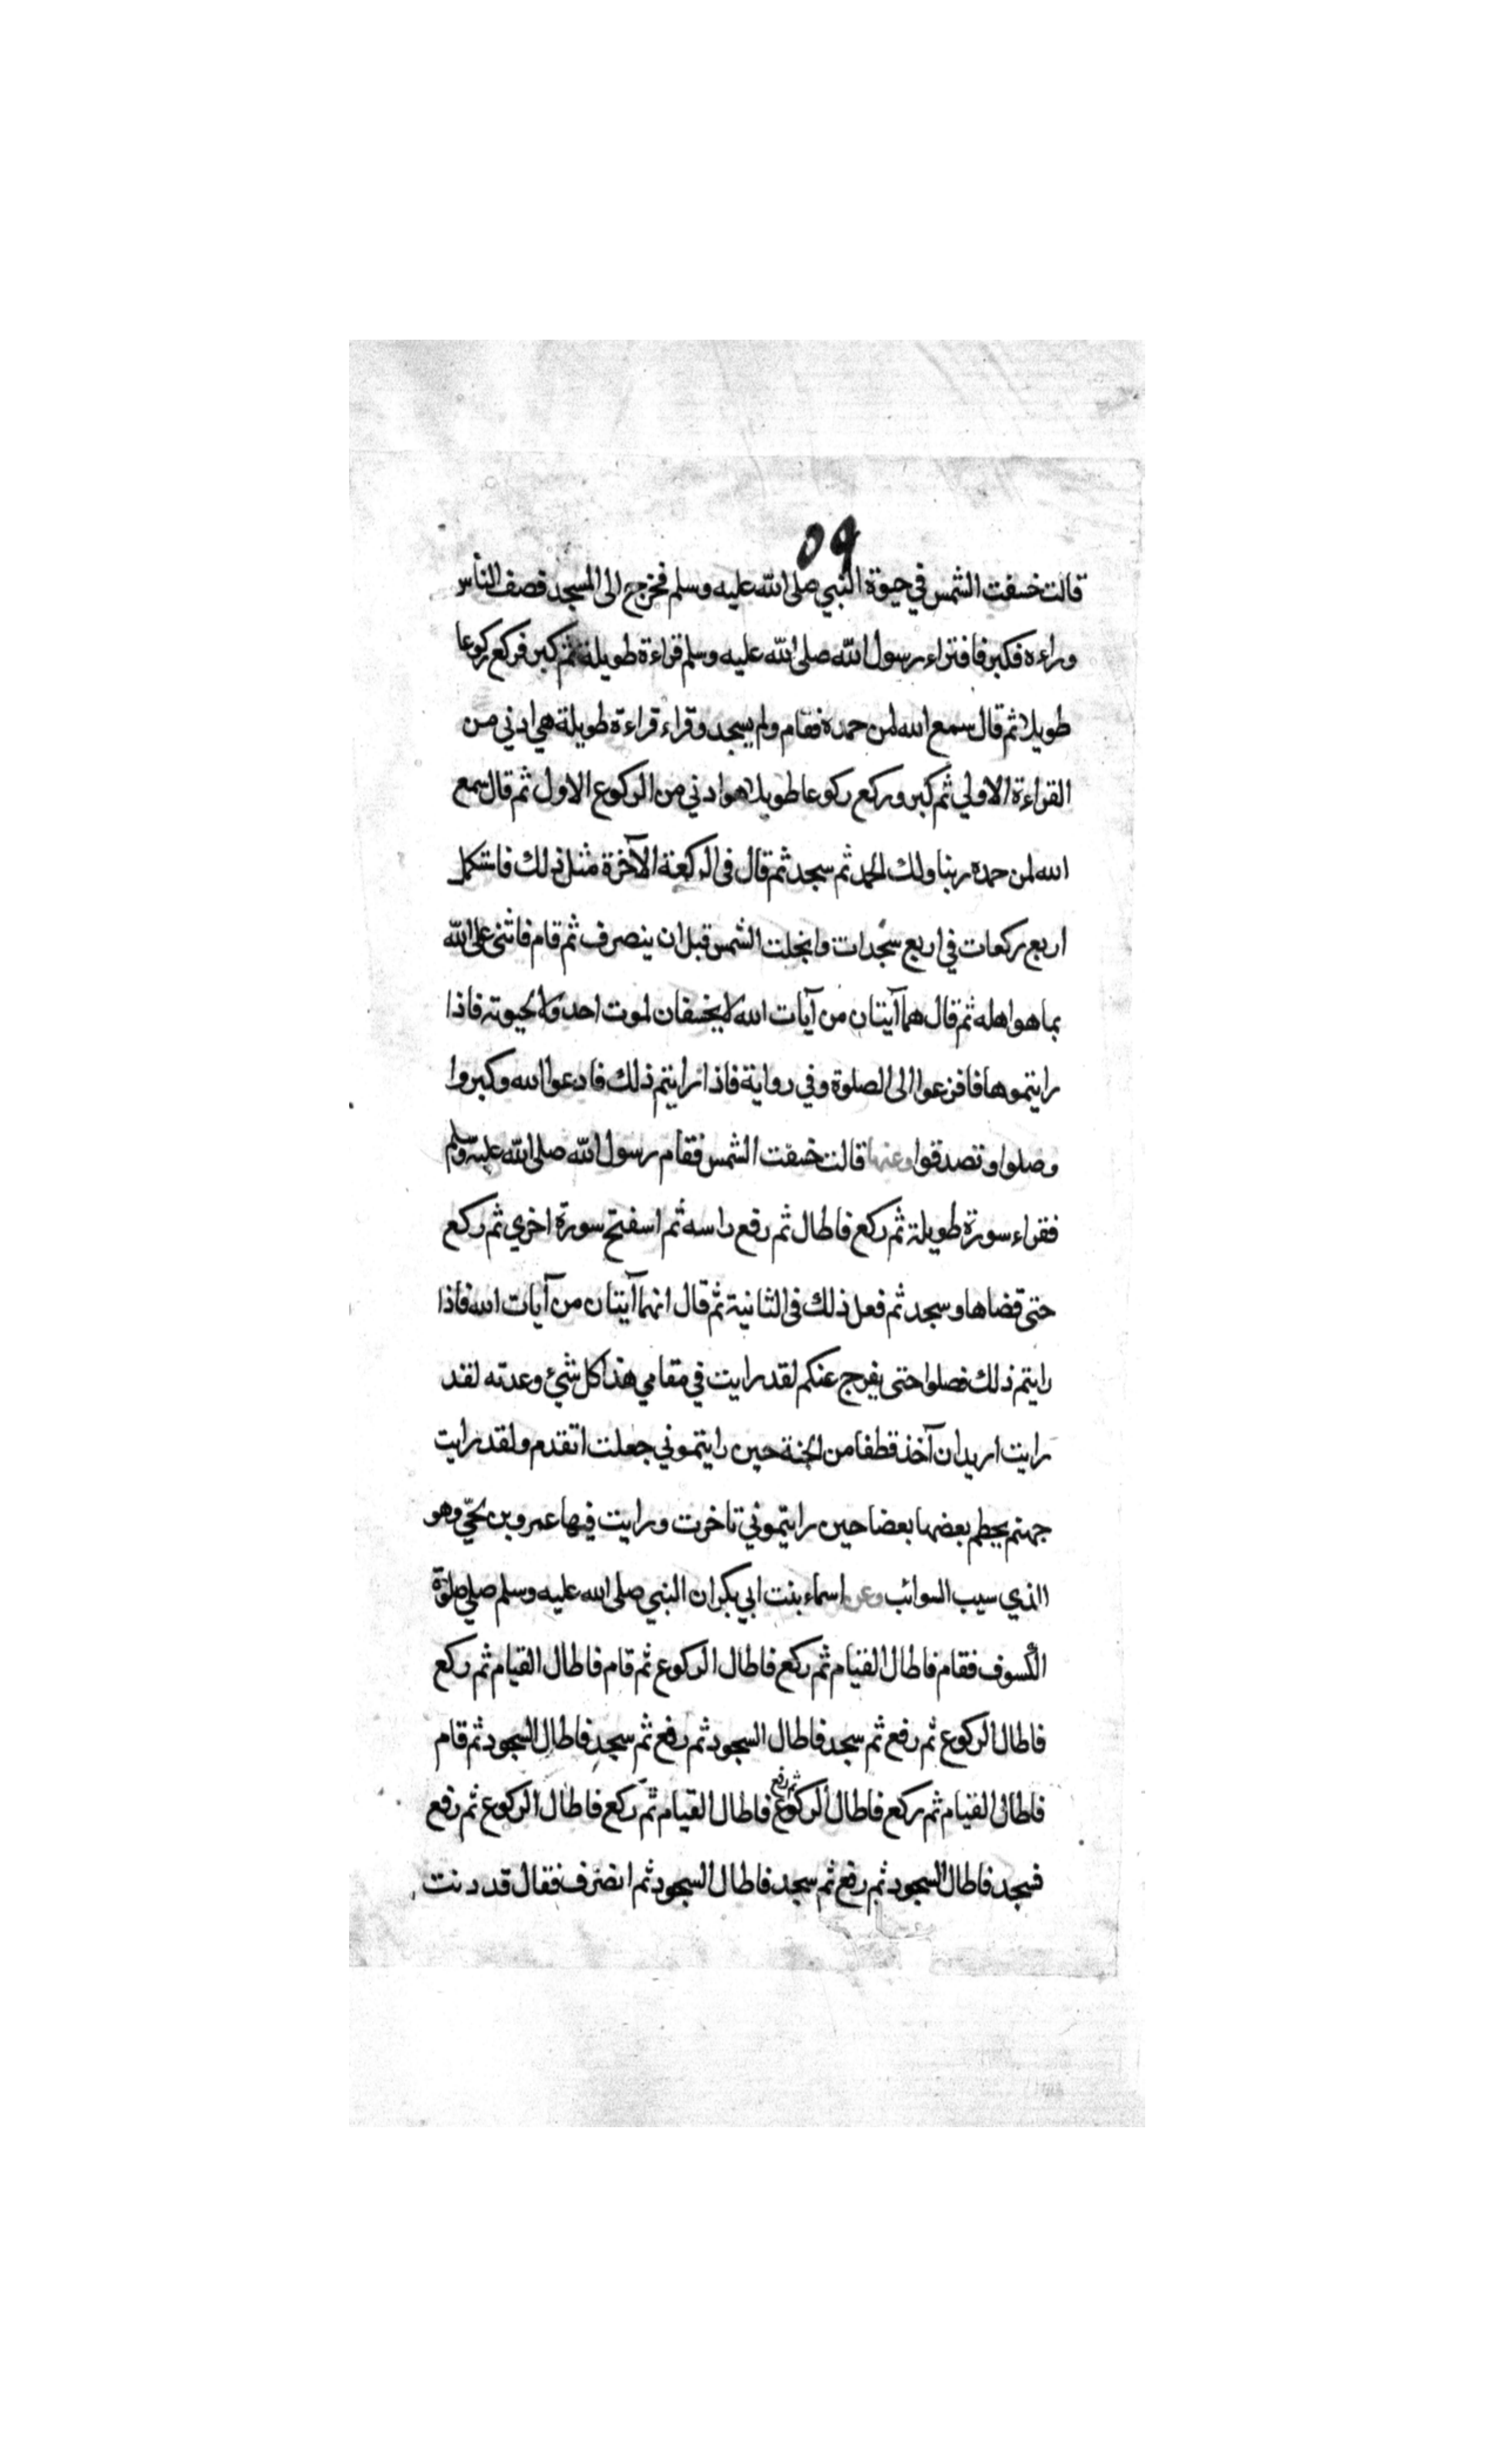 ٥٩
قالت خسفت الشمس في حيوة النبي صلى الله عليه وسلم فخرج الى المسجد فصف الناس
وراءه فكبر فاقتراء رسول الله صلى الله عليه وسلم قراءة طويلة ثم كبر فركع ركوعا
طويلا ثم قال سمع الله لمن حمده فقام ولم يسجد وقراء قراءة طويلة هي ادني من
القراءة الاولي ثم كبر وركع ركوعا طويلا هو ادني من الركوع الاول ثم قال سمع
الله لمن حمده ربنا ولك الحمد ثم سجد ثم قال في الركعة الآخرة مثل ذلك فاستكمل
اربع ركعات في اربع سجدات وانجلت الشمس قبل ان ينصرف ثم قام فاثنى على الله
بما هو اهله ثم قال هما آيتان من آيات الله لا يخسفان لموت احد ولا لحيوته فاذا
رايتموها فافزعوا الى الصلوة وفي رواية فاذا رايتم ذلك فادعوا الله وكبروا
وصلوا وتصدقوا وعنها قالت خسفت الشمس فقام رسول الله صلى الله عليه وسلم
فقراء سورة طويلة ثم ركع فاطال ثم رفع راسه ثم اسفتح سورة اخري ثم ركع
حتى قضاها وسجد ثم فعل ذلك في الثانية ثم قال انهما آيتان من آيات الله فاذا
رايتم ذلك فصلوا حتى يفرج عنكم لقد رايت في مقامي هذا كل شيئ وعدته لقد
رايت اريد ان آخذ قطفا من الجنة حين رايتموني جعلت اتقدم ولقد رايت
جهنم يحطم بعضها بعضا حين رايتموني تاخرت ورايت فيها عمرو بن لحيّ وهو
الذي سيب السوائب وعن اسماء بنت ابي بكر ان النبي صلى الله عليه وسلم صلي صلوة
الكسوف فقام فاطال القيام ثم ركع فاطال الركوع ثم قام فاطال القيام ثم ركع
فاطال الركوع ثم رفع ثم سجد فاطال السجود ثم رفع ثم سجد فاطال السجود ثم قام
فاطال القيام ثم ركع فاطال الركوع ثم رفع فاطال القيام ثم ركع فاطال الركوع ثم رفع
فسجد فاطال السجود ثم رفع ثم سجد فاطال السجود ثم انصرف فقال قد دنت